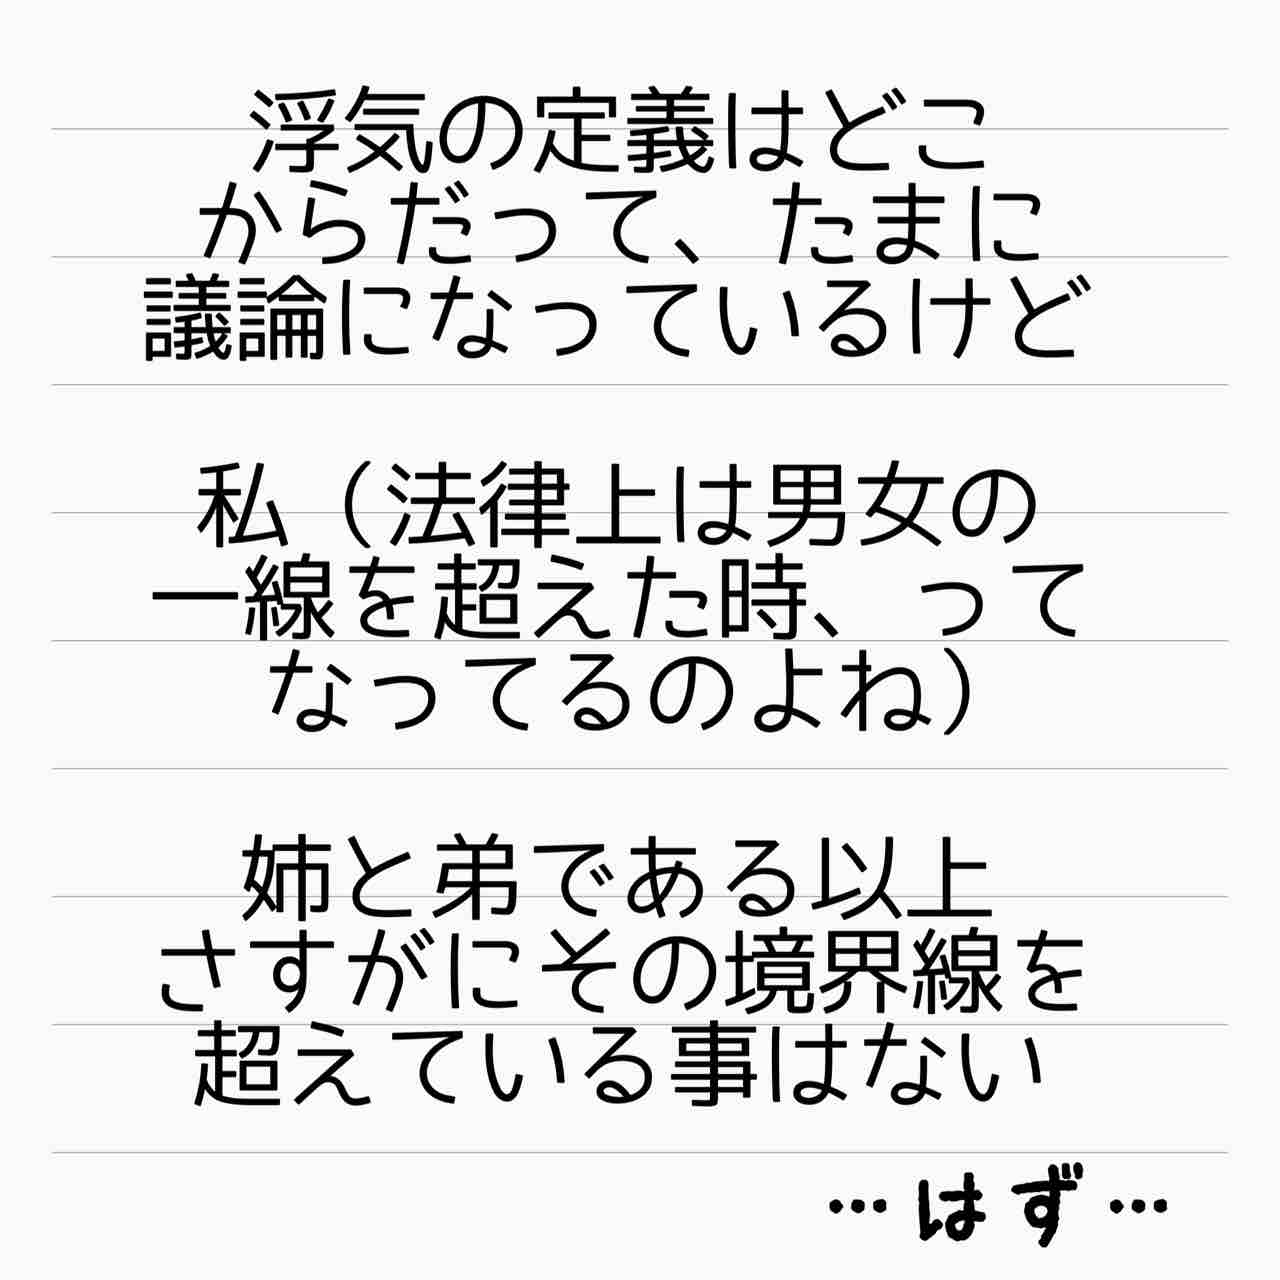 浮気の定義はどこ
からだって、たまに
議論になっているけど
私（法律上は男女の
一線を超えた時、って
なってるのよね）
姉と弟である以上
さすがにその境界線を
超えている事はない
…はず…